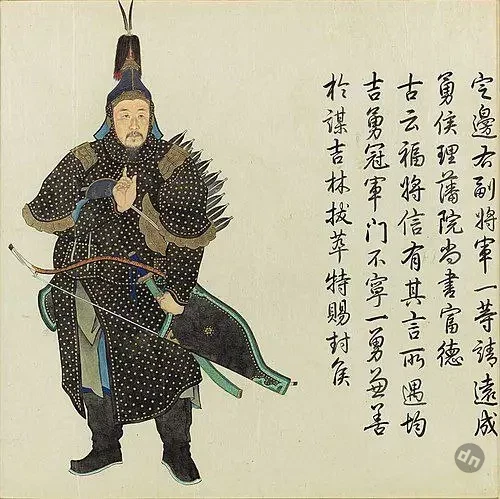 定邊右副將軍一等靖遠成
勇侯理藩院尚書富德
古云福將信有其言所遇均
吉勇冠軍門不寧一勇兼善
於謀吉林拔萃特賜封侯
dn